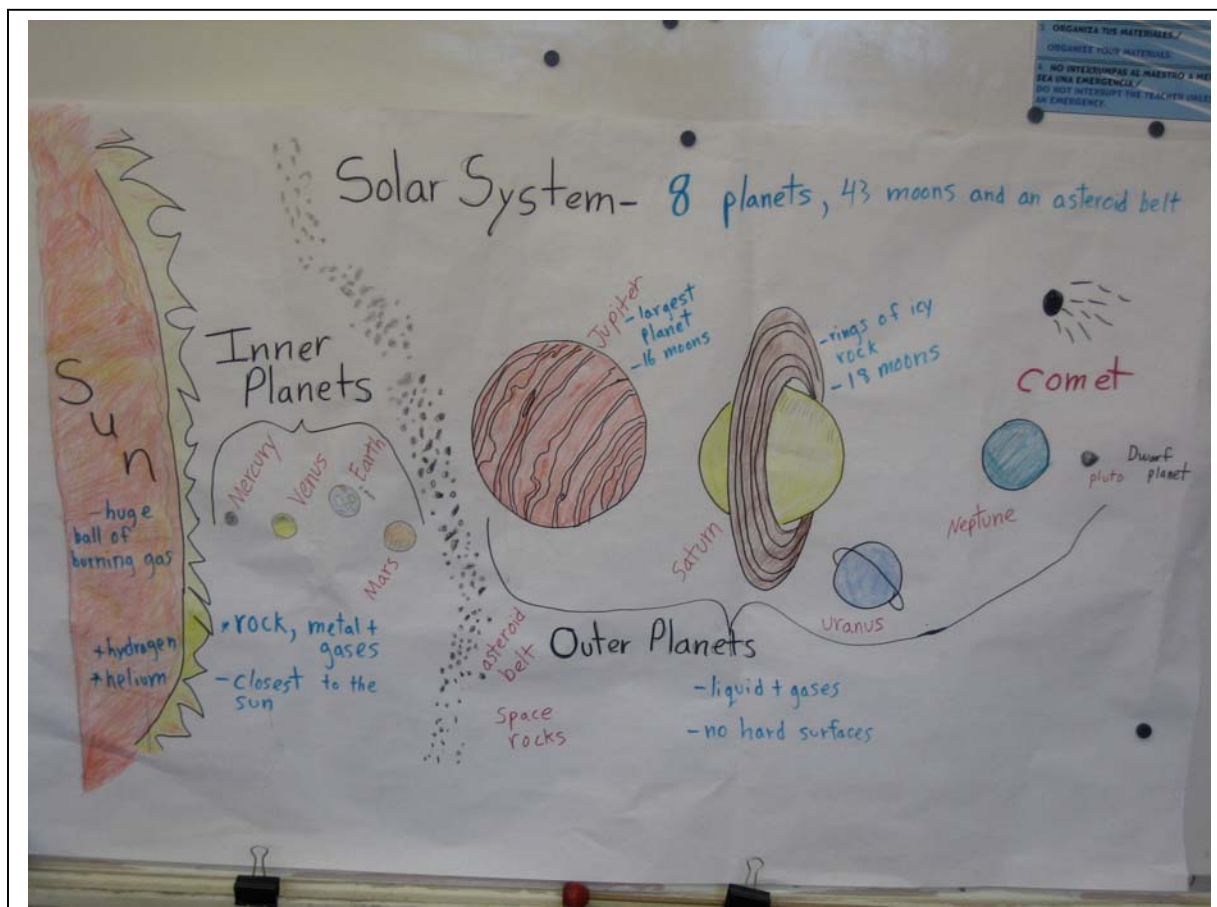 3. ORGANIZA TUS MATERIALES./
ORGANIZE YOUR MATERIALS.
4. NO INTERRUMPAS AL MAESTRO A
SEA UNA EMERGENCIA./
DO NOT INTERRUPT THE TEACHER
AN EMERGENCY.
Solar System- 8 planets, 43 moons and an asteroid belt
Sun
-huge
ball of
burning gas
*hydrogen
*helium
Inner
Planets
Mercury
Venus
Earth
Mars
*rock, metal+
gases
-closest to the
sun
asteroid
belt
Space
rocks
Jupiter
-largest
planet
-16 moons
Saturn
-rings of icy
rock
-18 moons
Uranus
Neptune
Comet
pluto
Dwarf
planet
Outer Planets
-liquid + gases
-no hard surfaces